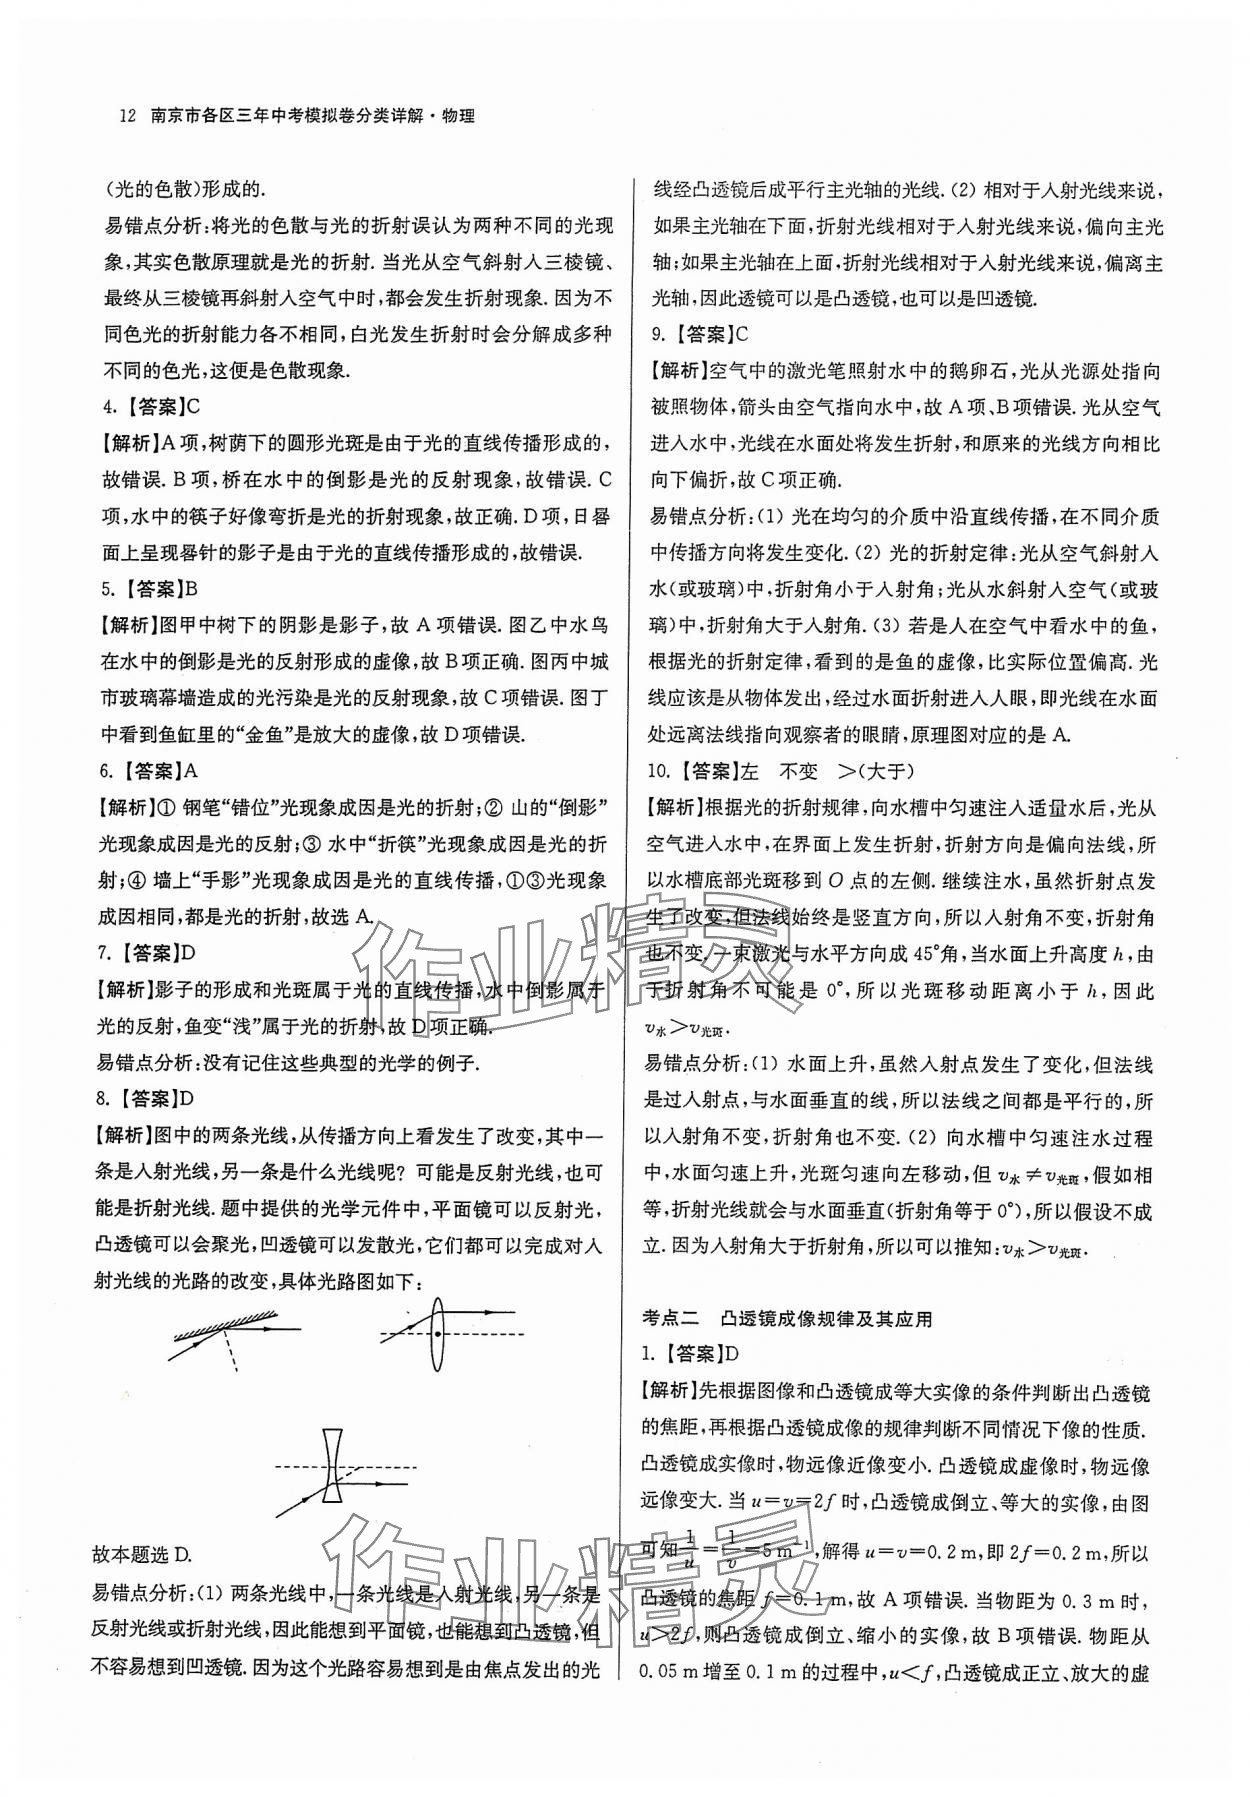 12 南京市各区三年中考模拟卷分类详解·物理
(光的色散)形成的.
易错点分析:将光的色散与光的折射误认为两种不同的光现
象,其实色散原理就是光的折射. 当光从空气斜射入三棱镜、
最终从三棱镜再斜射入空气中时,都会发生折射现象. 因为不
同色光的折射能力各不相同,白光发生折射时会分解成多种
不同的色光,这便是色散现象.
4. 【答案】C
【解析】A 项,树荫下的圆形光斑是由于光的直线传播形成的,
故错误. B 项,桥在水中的倒影是光的反射现象,故错误. C
项,水中的筷子好像弯折是光的折射现象,故正确. D 项,日晷
面上呈现晷针的影子是由于光的直线传播形成的,故错误.
5. 【答案】B
【解析】图甲中树下的阴影是影子,故 A 项错误. 图乙中水鸟
在水中的倒影是光的反射形成的虚像,故 B 项正确. 图丙中城
市玻璃幕墙造成的光污染是光的反射现象,故 C 项错误. 图丁
中看到鱼缸里的“金鱼”是放大的虚像,故 D 项错误.
6. 【答案】A
【解析】① 钢笔“错位”光现象成因是光的折射;② 山的“倒影”
光现象成因是光的反射;③ 水中“折筷”光现象成因是光的折
射;④ 墙上“手影”光现象成因是光的直线传播,①③光现象
成因相同,都是光的折射,故选 A.
7. 【答案】D
【解析】影子的形成和光斑属于光的直线传播,水中倒影属于
光的反射,鱼变“浅”属于光的折射,故 D 项正确.
易错点分析:没有记住这些典型的光学的例子.
8. 【答案】D
【解析】图中的两条光线,从传播方向上看发生了改变,其中一
条是入射光线,另一条是什么光线呢? 可能是反射光线,也可
能是折射光线. 题中提供的光学元件中,平面镜可以反射光,
凸透镜可以会聚光,凹透镜可以发散光,它们都可以完成对入
射光线的光路的改变,具体光路图如下:
故本题选 D.
易错点分析:(1) 两条光线中,一条光线是入射光线,另一条是
反射光线或折射光线,因此能想到平面镜,也能想到凸透镜,但
不容易想到凹透镜. 因为这个光路容易想到是由焦点发出的光
线经凸透镜后成平行主光轴的光线. (2) 相对于入射光线来说,
如果主光轴在下面,折射光线相对于入射光线来说,偏向主光
轴;如果主光轴在上面,折射光线相对于入射光线来说,偏离主
光轴,因此透镜可以是凸透镜,也可以是凹透镜.
9. 【答案】C
【解析】空气中的激光笔照射水中的鹅卵石,光从光源处指向
被照物体,箭头由空气指向水中,故 A 项、B 项错误. 光从空气
进入水中,光线在水面处将发生折射,和原来的光线方向相比
向下偏折,故 C 项正确.
易错点分析:(1) 光在均匀的介质中沿直线传播,在不同介质
中传播方向将发生变化. (2) 光的折射定律:光从空气斜射入
水(或玻璃)中,折射角小于入射角;光从水斜射入空气(或玻
璃)中,折射角大于入射角. (3) 若是人在空气中看水中的鱼,
根据光的折射定律,看到的是鱼的虚像,比实际位置偏高. 光
线应该是从物体发出,经过水面折射进入人眼,即光线在水面
处远离法线指向观察者的眼睛,原理图对应的是 A.
10. 【答案】左 不变 >(大于)
【解析】根据光的折射规律,向水槽中匀速注入适量水后,光从
空气进入水中,在界面上发生折射,折射方向是偏向法线,所
以水槽底部光斑移到 O 点的左侧. 继续注水,虽然折射点发
生了改变,但法线始终是竖直方向,所以入射角不变,折射角
也不变. 一束激光与水平方向成 45°角,当水面上升高度 h,由
于折射角不可能是 0°,所以光斑移动距离小于 h,因此
v水>v光斑.
易错点分析:(1) 水面上升,虽然入射点发生了变化,但法线
是过入射点,与水面垂直的线,所以法线之间都是平行的,所
以入射角不变,折射角也不变. (2) 向水槽中匀速注水过程
中,水面匀速上升,光斑匀速向左移动,但 v水≠v光斑,假如相
等,折射光线就会与水面垂直(折射角等于 0°),所以假设不成
立. 因为入射角大于折射角,所以可以推知:v水>v光斑.
考点二 凸透镜成像规律及其应用
1. 【答案】D
【解析】先根据图像和凸透镜成等大实像的条件判断出凸透镜
的焦距,再根据凸透镜成像的规律判断不同情况下像的性质.
凸透镜成实像时,物远像近像变小. 凸透镜成虚像时,物远像
远像变大. 当 u=v=2f 时,凸透镜成倒立、等大的实像,由图
可知1/u=1/v=5 m⁻¹,解得 u=v=0.2 m,即 2f=0.2 m,所以
凸透镜的焦距 f=0.1 m,故 A 项错误. 当物距为 0.3 m 时,
u>2f,则凸透镜成倒立、缩小的实像,故 B 项错误. 物距从
0.05 m 增至 0.1 m 的过程中,u<f,凸透镜成正立、放大的虚
作业精灵
作业精灵